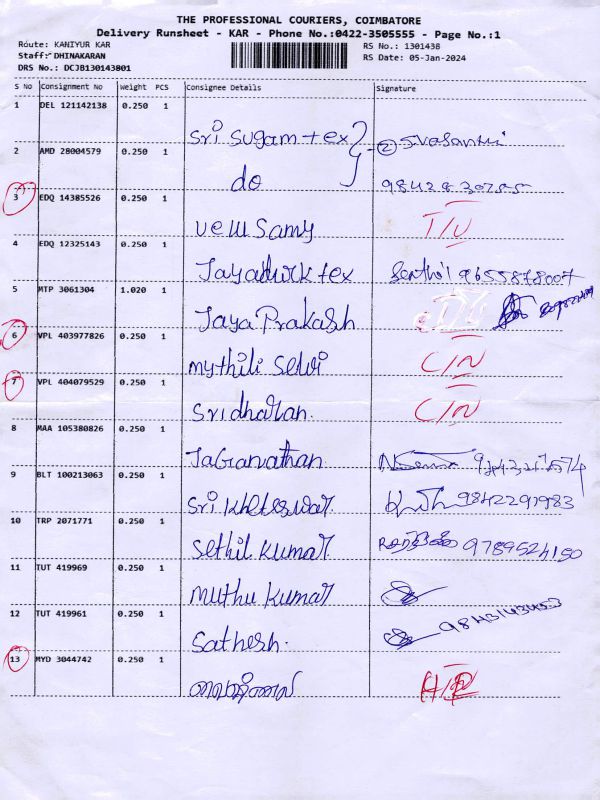 THE PROFESSIONAL COURIERS, COIMBATORE
Delivery Runsheet - KAR - Phone No.:0422-3505555 - Page No.:1
Route: KANIYUR KAR RS No.: 1301438
Staff: DHINAKARAN RS Date: 05-Jan-2024
DRS No.: DCJB130143801
S No Consignment No Weight PCS Consignee Details Signature
1 DEL 121142138 0.250 1
Sri Sugam tex } - ② S.Vasanthi
2 AMD 28004579 0.250 1
do
3 EDQ 14385526 0.250 1
Velusamy T/U
4 EDQ 12325143 0.250 1
tex Senthil 9655878007
5 MTP 3061304 1.020 1
Jaya Prakash
6 VPL 403977826 0.250 1
mythili selvi C/N
7 VPL 404079529 0.250 1
Sridharan. C/N
8 MAA 105380826 0.250 1
Jaganathan
9 BLT 100213063 0.250 1
Sri 9842291983
10 TRP 2071771 0.250 1
Sethil Kumar 9789524150
11 TUT 419969 0.250 1
Muthu Kumar
12 TUT 419961 0.250 1
Sathesh. 9843143453
13 MYD 3044742 0.250 1